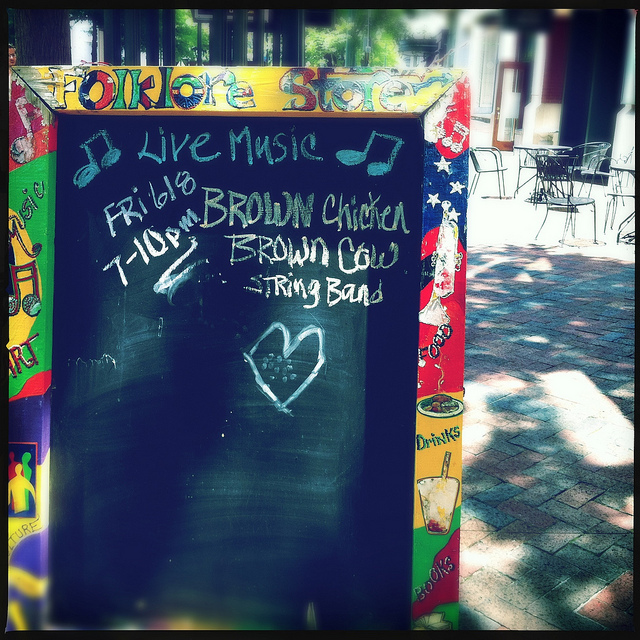 Folklore Store
Live Music
FRi 6/8
7-10pm
BROWN Chicken
BROWN COW
STRing Band
Music
ART
TURE
FOOD
DRiNKS
BOOKS